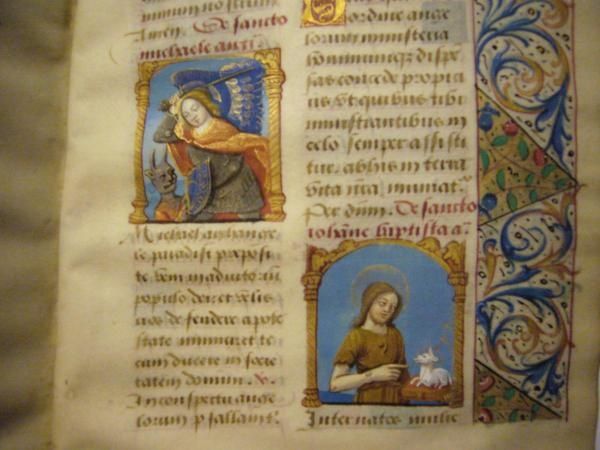 Amen. De sancto
michaele anti.
Michael archange
le paradisi preposi
te veni in adiutoriũ
populo dei et velis
nos defendere a pote
state inimici et te
cum ducere in socie
tatem domini. V.
In conspectu ange
lorum psallam t.
ordine ange
lorum ministeria
hominumque dispē
sas concede propici
us ut quibus tibi
ministrantibus in
celo semper assisti
tur ab his in terra
vita nr̃a muniat.
Per dñm. De sancto
iohãne baptista a.
Inter natos mulie